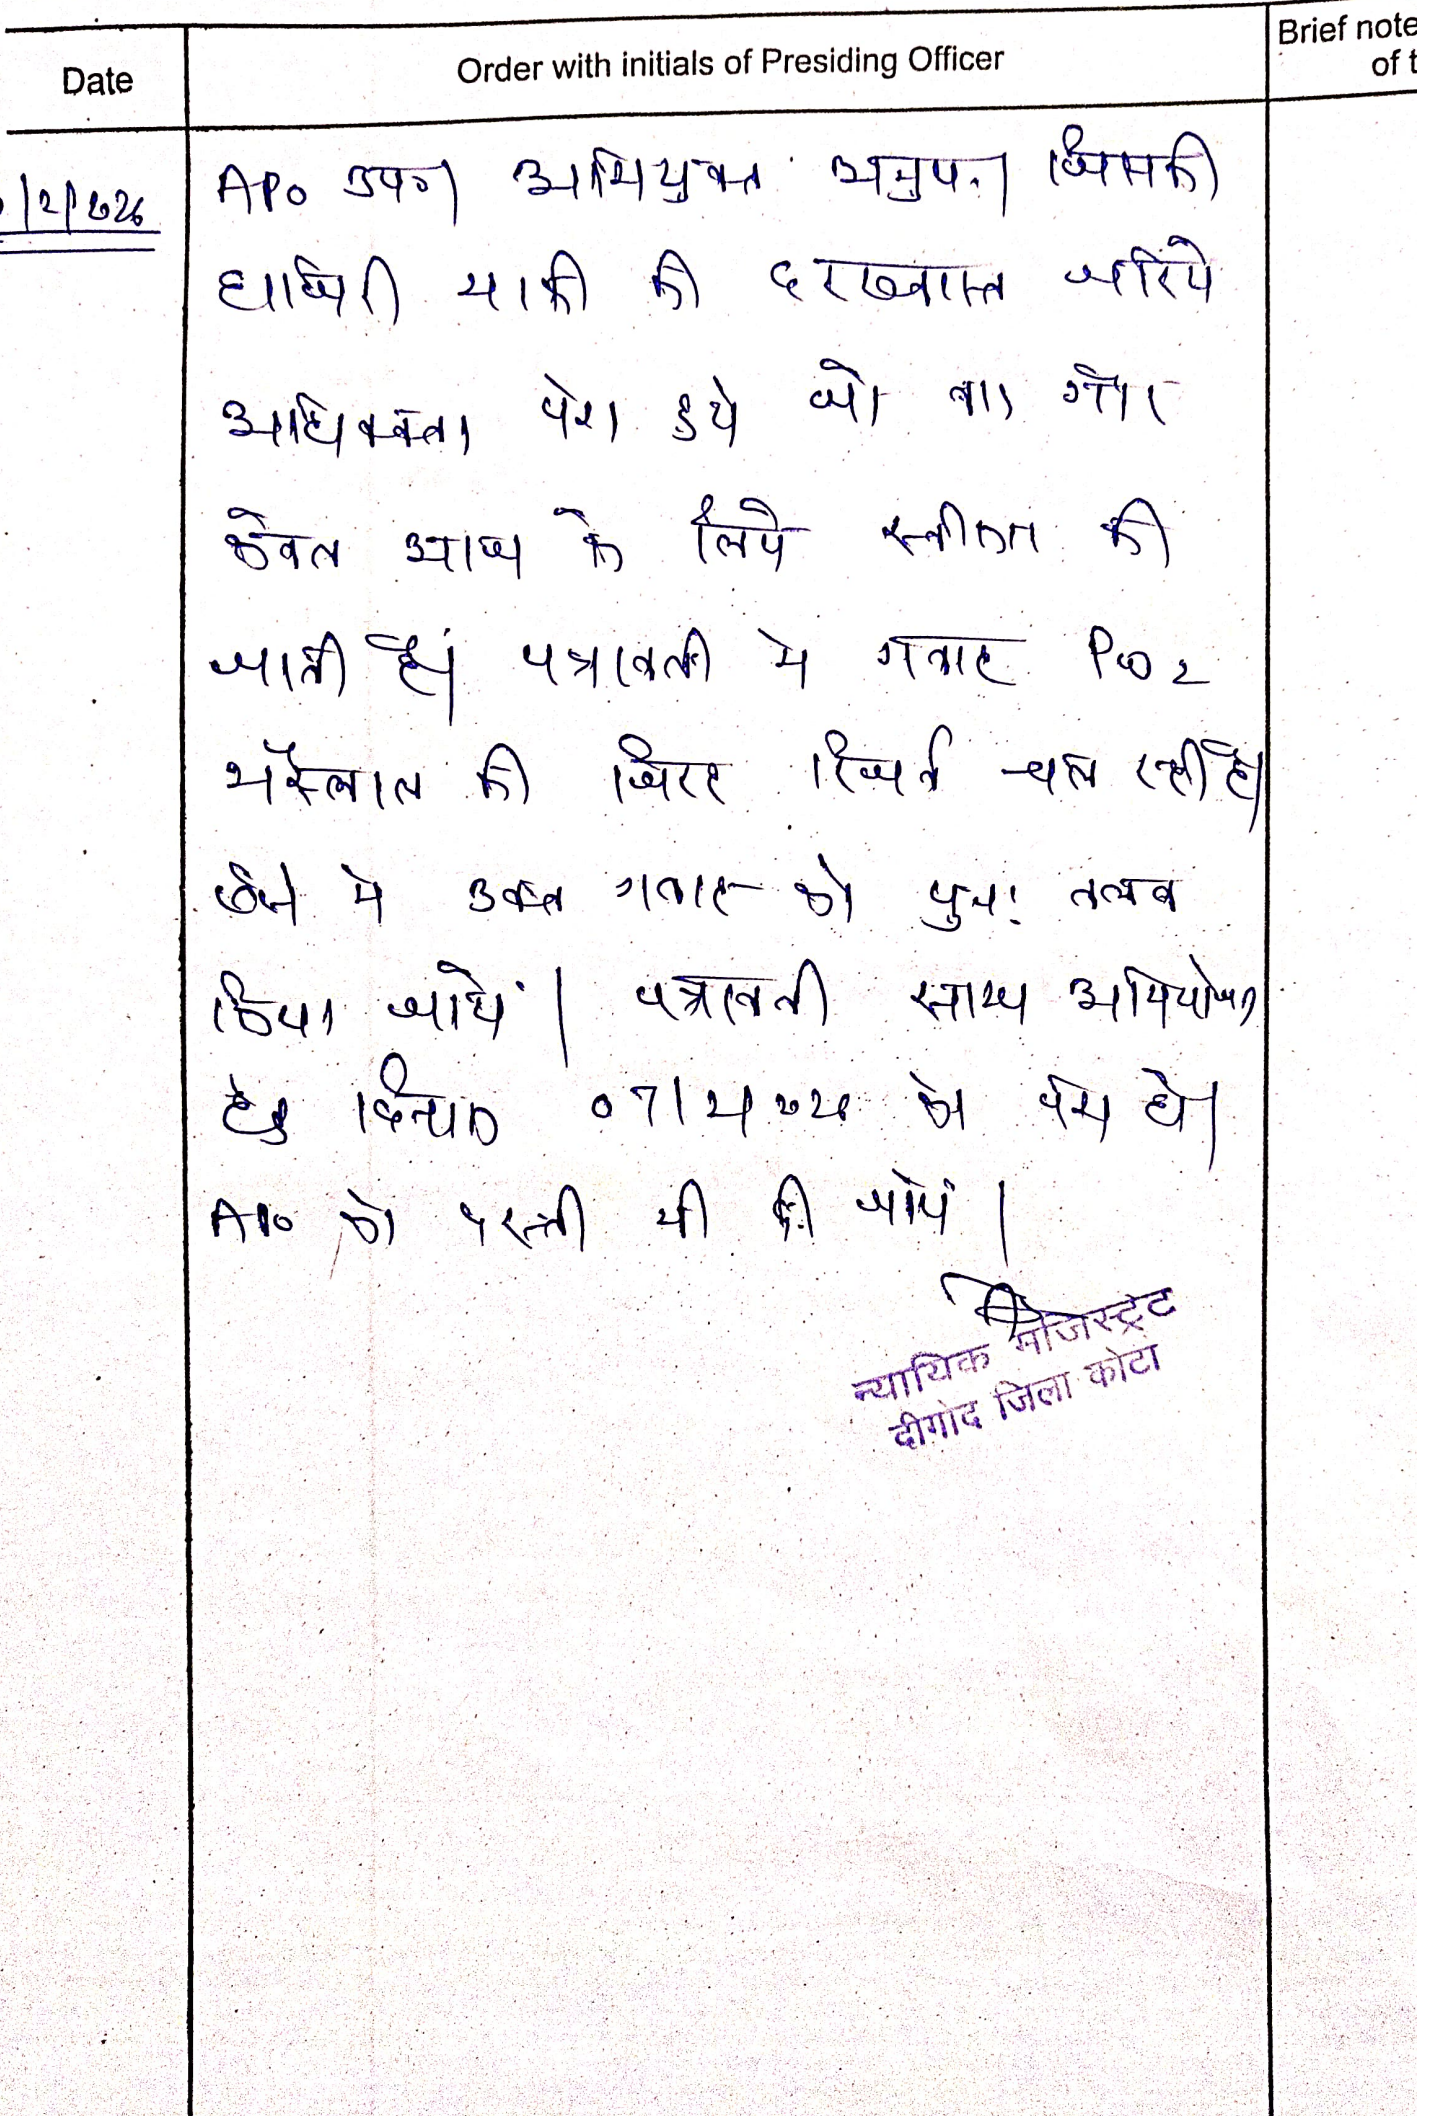 Date
Order with initials of Presiding Officer
Brief note
of t
/2/2026
APO उप०। अभियुक्त अनुप.। जिसकी
हाजिरी माफी की दरख्वास्त जरिये
अधिवक्ता पेश हुये जो बाद गौर
केवल आज के लिये स्वीकृत की
जाती है। पत्रावली मे गवाह PW2
की जिरह रिजर्व चल रही है।
ऐसे मे उक्त गवाह को पुनः तलब
किया जाये। पत्रावली साक्ष्य अभियोजन
हेतु दिनांक को पेश हो।
APO को दस्ती भी दी जाये।
न्यायिक मजिस्ट्रेट
दीगोद जिला कोटा